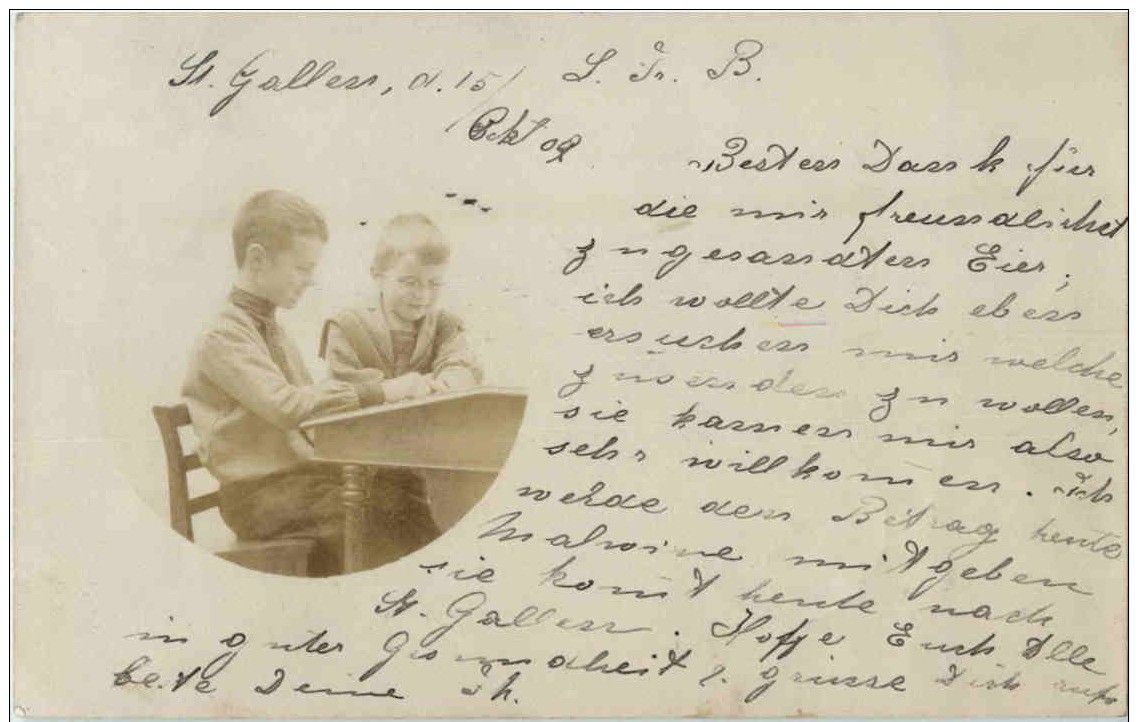 St. Gallen, d. 15/
Okt 09.
L. Fr. B.
Besten Dank für
die mir freundlichst
zugesandten Eier,
ich wollte Dich eben
ersuchen mir welche
zusenden zu wollen,
sie kamen mir also
sehr willkomen. Ich
werde den Betrag heute
Malwine mitgeben
sie komt heute nach
St. Gallen. Hoffe Euch Alle
in guter Gesundheit & grüsse Dich aufs
beste Deine Th.